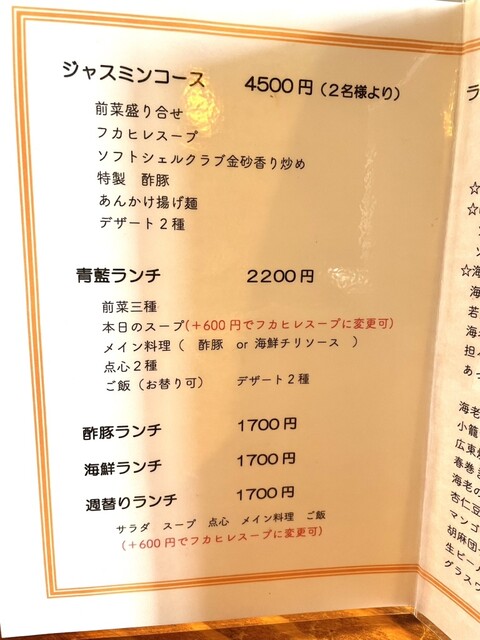 ジャスミンコース 4500円（2名様より）
前菜盛り合せ
フカヒレスープ
ソフトシェルクラブ金砂香り炒め
特製 酢豚
あんかけ揚げ麺
デザート2種
青藍ランチ 2200円
前菜三種
本日のスープ(＋600円でフカヒレスープに変更可)
メイン料理（ 酢豚 or 海鮮チリソース ）
点心2種
ご飯（お替り可） デザート2種
酢豚ランチ 1700円
海鮮ランチ 1700円
週替りランチ 1700円
サラダ スープ 点心 メイン料理 ご飯
(＋600円でフカヒレスープに変更可)
ラ
☆
☆
☆海
海
若
海老
担々
あっ
海老
小籠
広東
春巻き
海老の
杏仁豆
マンゴ
胡麻団
生ビー
グラスワ